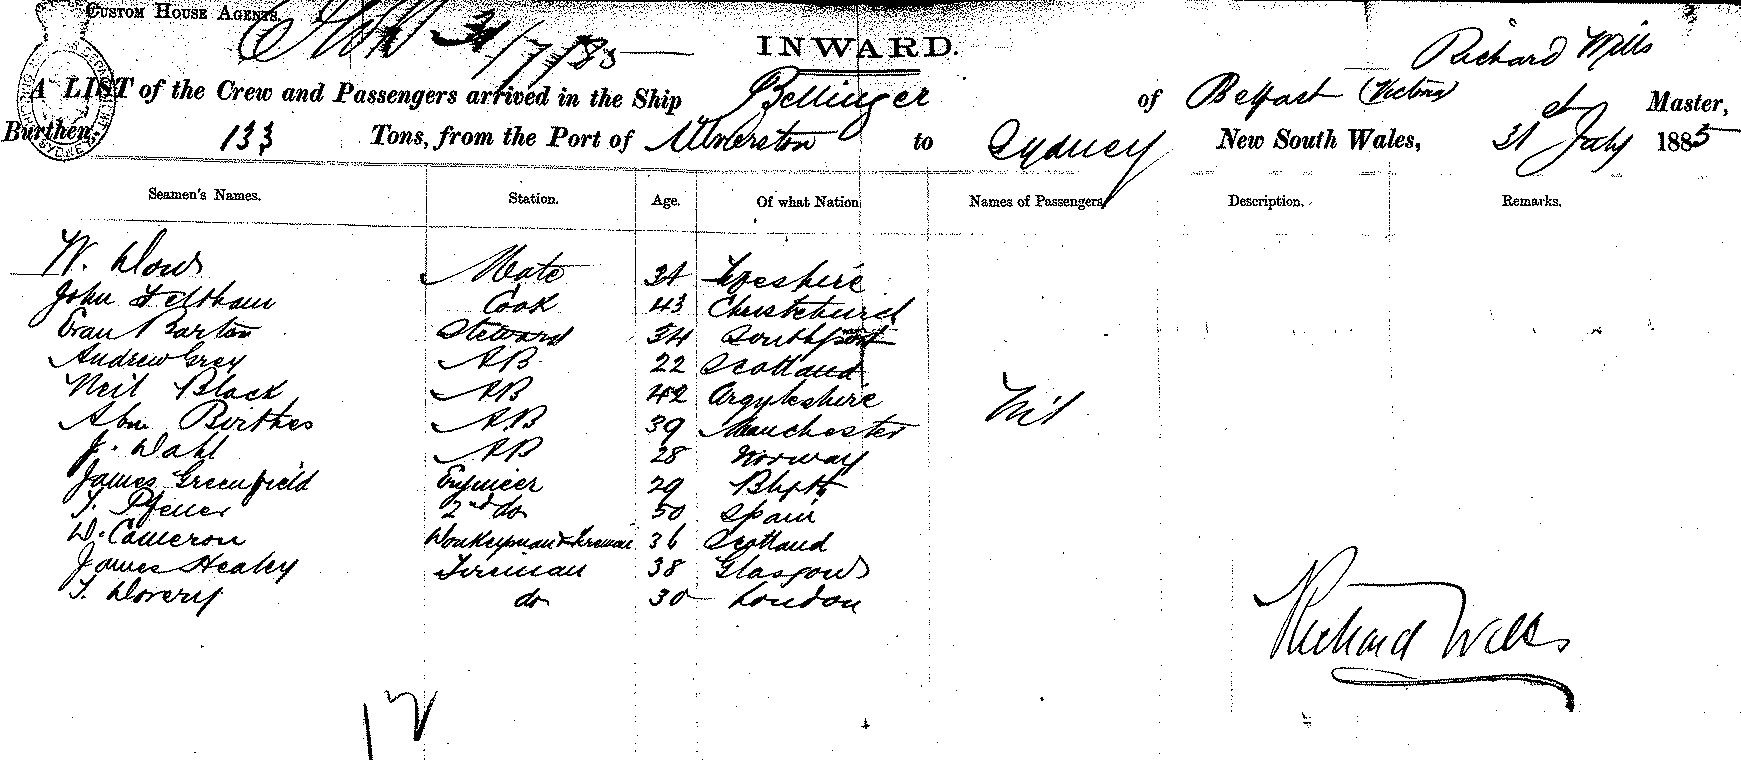 CUSTOM HOUSE AGENTS.
31/7/85
INWARD.
Richard Wills
A LIST of the Crew and Passengers arrived in the Ship Bellinger of Belfast (Victoria) Master,
Burthen, 133 Tons, from the Port of Ulverston to Sydney New South Wales, 31st July 1885
Seamen's Names. Station. Age. Of what Nation Names of Passengers Description. Remarks.
W. Dowd Mate 34
John Feltham Cook 43 Christchurch
Evan Barton Steward 34 Southport
Andrew Grey AB 22 Scotland
Neil Black AB 42 Argyleshire
Abm AB 39 Manchester
J. Dahl AB 28 Norway
James Greenfield Engineer 29 Blyth
2nd do 50 Spain
D. Cameron Donkeyman & Fireman 36 Scotland
James Healey Fireman 38 Glasgow
T. do 30 London
Nil
Richard Wills
12